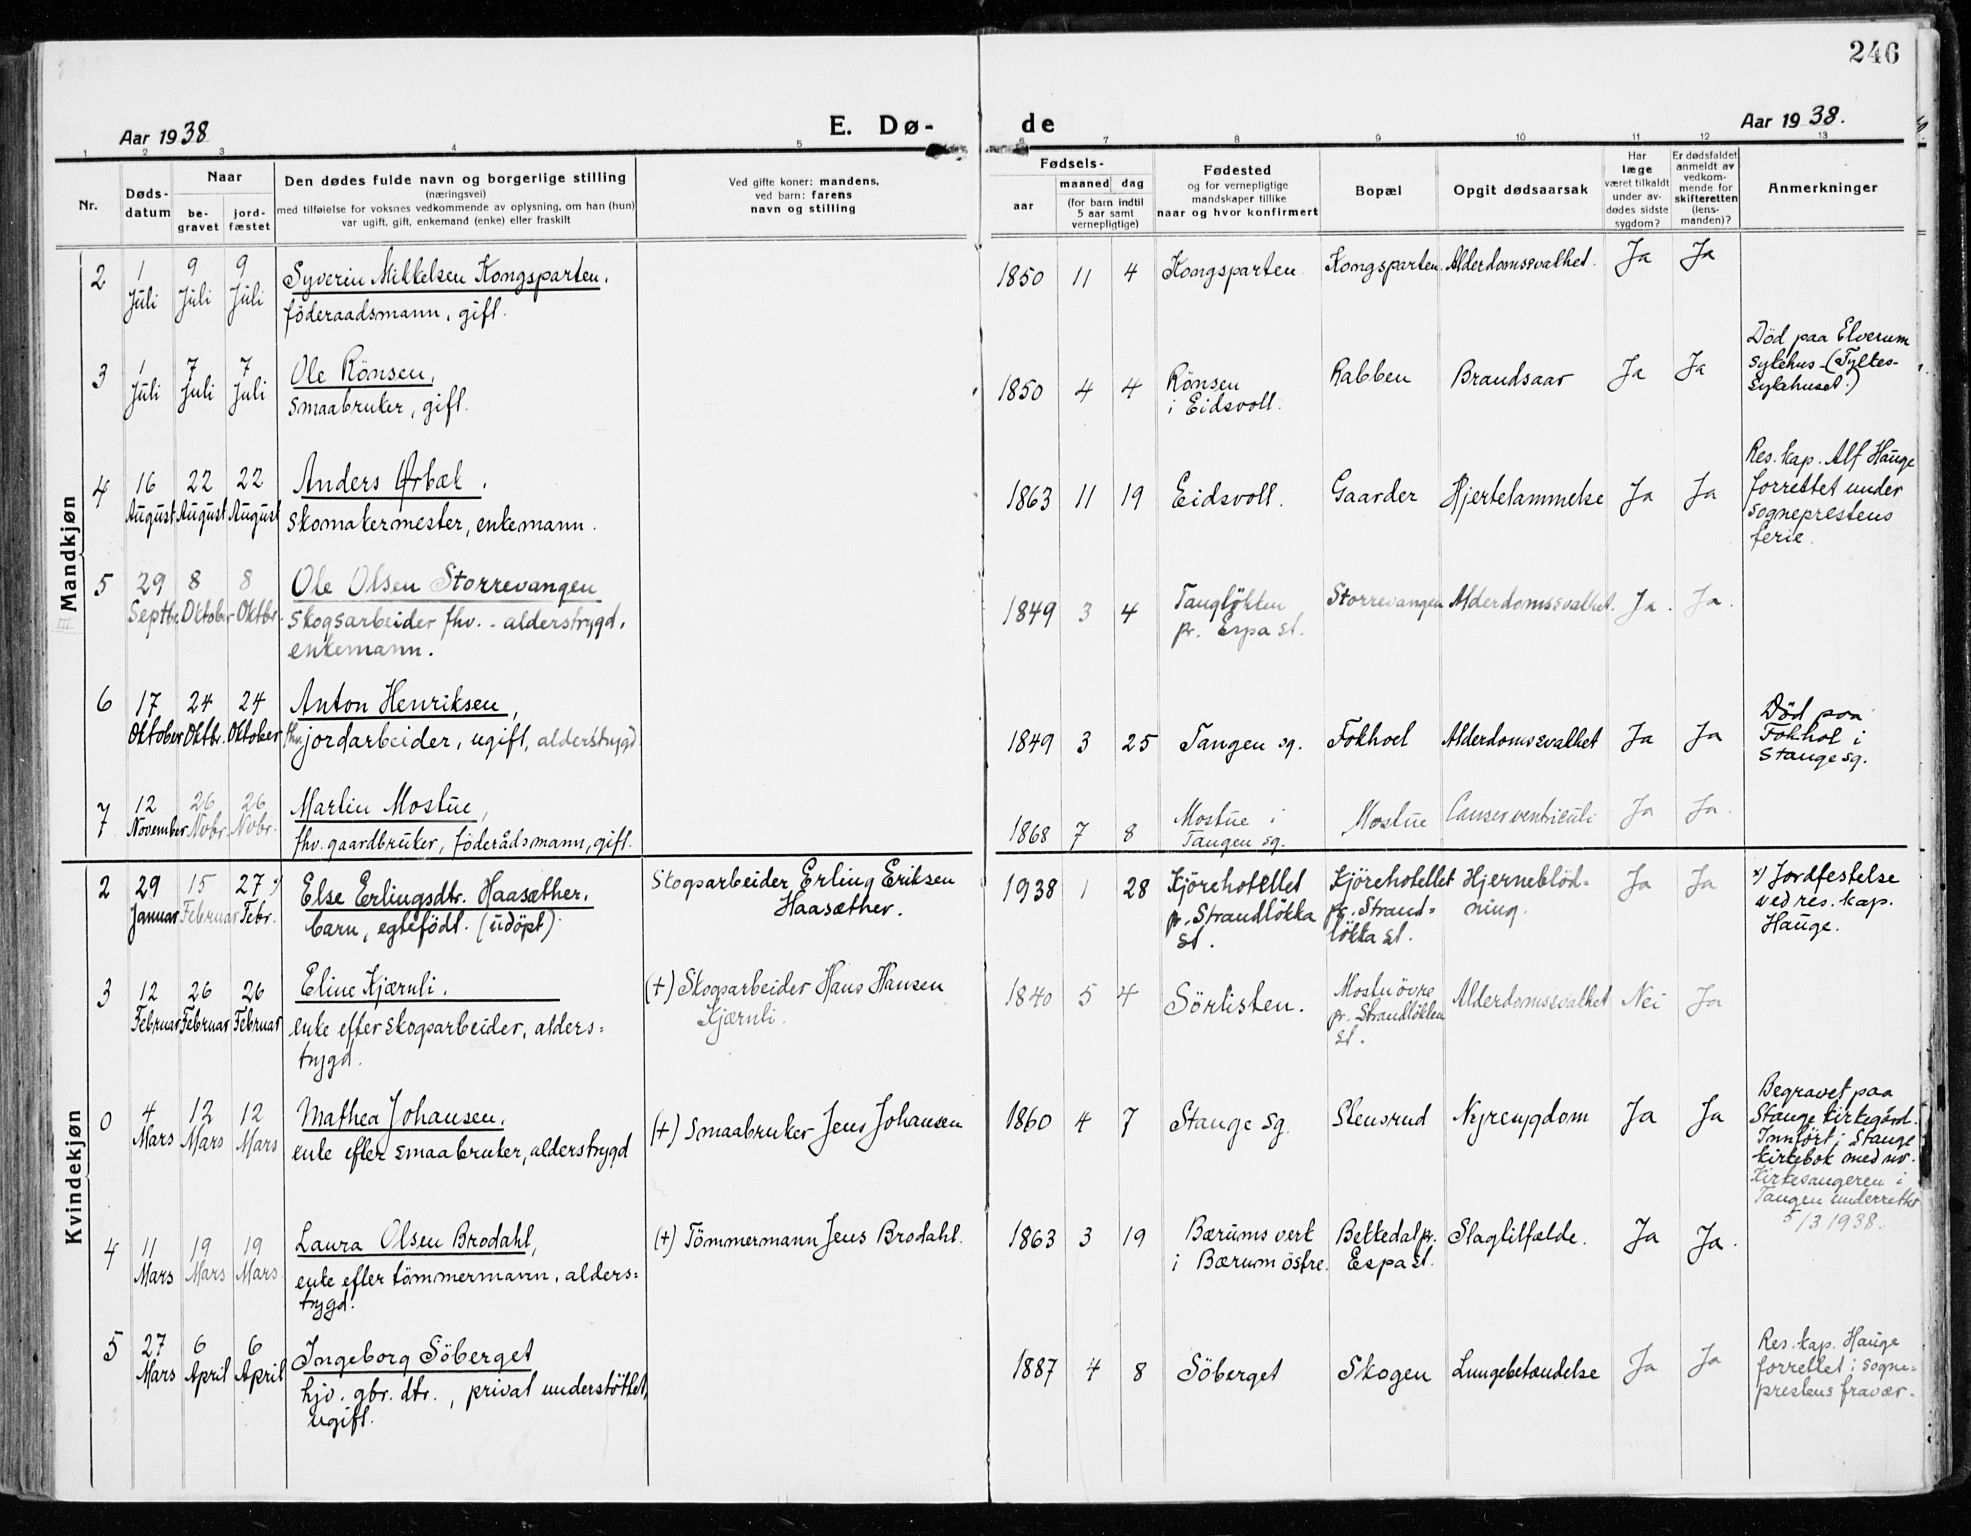 246
Aar 1938
E. Dø-
de
Aar 1938.
1 2 3 4 5 6 7 8 9 10 11 12 13
Nr.
Døds-
datum
Naar
be-
gravet
jord-
fæstet
Den dødes fulde navn og borgerlige stilling
(næringsvei)
med tilføielse for voksnes vedkommende av oplysning, om han (hun)
var ugift, gift, enkemand (enke) eller fraskilt
Ved gifte koner: mandens,
ved barn: farens
navn og stilling
Fødsels-
aar
maaned dag
(for barn indtil
5 aar samt
vernepligtige)
Fødested
og for vernepligtige
mandskaper tillike
naar og hvor konfirmert
Bopæl
Opgit dødsaarsak
Har
læge
været tilkaldt
under av-
dødes sidste
sygdom?
Er dødsfaldet
anmeldt av
vedkom-
mende for
skifteretten
(lens-
manden)?
Anmerkninger
Mandkjøn
2 1 9 9 Syverin Mikkelsen Kongsparten. 1850 11 4 Kongsparten Kongsparten Alderdomssvakhet. Ja Ja
Juli Juli Juli föderaadsmann, gift.
3 1 7 7 Ole Rönsen, 1850 4 4 Rönsen Rabben Brandsaar Ja Ja
Juli Juli Juli smaabruker, gift. i Eidsvoll.
Död paa Elverum
sykehus
4 16 22 22 Anders Ørbæk. 1863 11 19 Eidsvoll. Gaarder Hjertelammelse Ja Ja
August August August skomakermester, enkemann.
Res. kap. Alf Hauge
forrettet under
sogneprestens
ferie.
5 29 8 8 Ole Olsen Storrevangen 1849 3 4 Tangløkken Storrevangen Alderdomssvakhet. Ja. Ja.
Septbr. Oktober Oktbr. skogsarbeider fhv. - alderstrygd, pr. Espa st.
enkemann.
6 17 24 24 Anton Henriksen, 1849 3 25 Tangen sg. Fokhoel Alderdomssvakhet Ja Ja
Oktober Oktbr. Oktober fhv. jordarbeider, ugift, alderstrygd
Död paa
Fokhol i
Stange sg.
7 12 26 26 Martin Mostue, 1868 7 8 Mostue i Mostue Canser ventriculi Ja Ja.
November Novbr. Novbr. fhv. gaardbruker, föderådsmann, gift. Tangen sg.
Kvindekjøn
2 29 15 27 x) Else Erlingsdtr. Haasæther. Skogsarbeider Erling Eriksen 1938 1 28 Kjörehotellet Kjörehotellet Hjerneblöd- Ja Ja
Januar Februar Febr. barn, egtefödt. (udöpt). Haasæther. pr. Strandlökka pr. Strand- ning.
st. lökka st.
x) Jordfestelse
ved res. kap.
Hauge.
3 12 26 26 Eline Kjærnli. (+) Skogsarbeider Hans Hansen 1840 5 4 Sörlisten. Mostu övre Alderdomssvakhet Nei Ja
Februar Februar Februar enke efter skogsarbeider, alders- Kjærnli. pr. Strandlökken
trygd. st.
0 4 12 12 Mathea Johansen. (+) Smaabruker Jens Johansen 1860 4 7 Stange sg. Stensrud Nyresygdom Ja Ja
Mars Mars Mars enke efter smaabruker, alderstrygd
Begravet paa
Stange kirkegård.
Innfört i Stange
kirkebok med nr.
Kirkesangeren i
Tangen underrettet
5/3 1938.
4 11 19 19 Laura Olsen Brodahl, (+) Tömmermann Jens Brodahl. 1863 3 19 Bærums verk Bekkedal pr. Slagtilfælde. Ja Ja.
Mars Mars Mars enke efter tömmermann, alders- i Bærum östre. Espa st.
trygd.
5 27 6 6 Ingeborg Söberget 1887 4 8 Söberget Skogen Lungebetændelse Ja Ja
Mars April April hjv. gbr. dtr., privat understöttet,
ugift.
Res. kap. Hauge
forrettet i sogne-
prestens fravær.